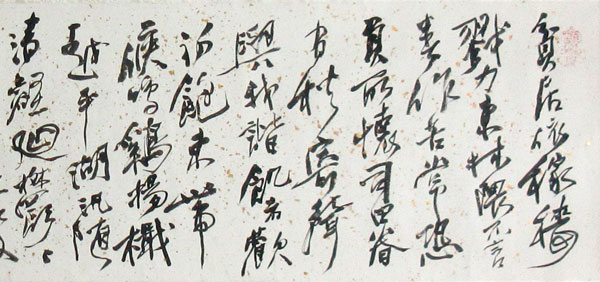 貧居依稼穡
戮力東林隈不言
春作苦常恐
負所懷司田眷
有秋寄聲
與我諧飢者歡
初飽束帶
候鳴鷄揚檝
越平湖汎隨
清壑迴